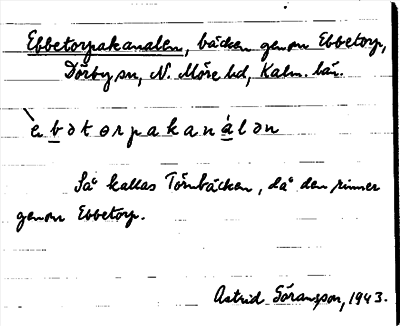 Ebbetorpakanalen, bäcken genom Ebbetorp,
Dörby sn, N. Möre hd, Kalm. län.
è b ə t ɵ r p a k a n á l ə n
Så kallas Törnbäcken, då den rinner
genom Ebbetorp.
Astrid Göransson, 1943.